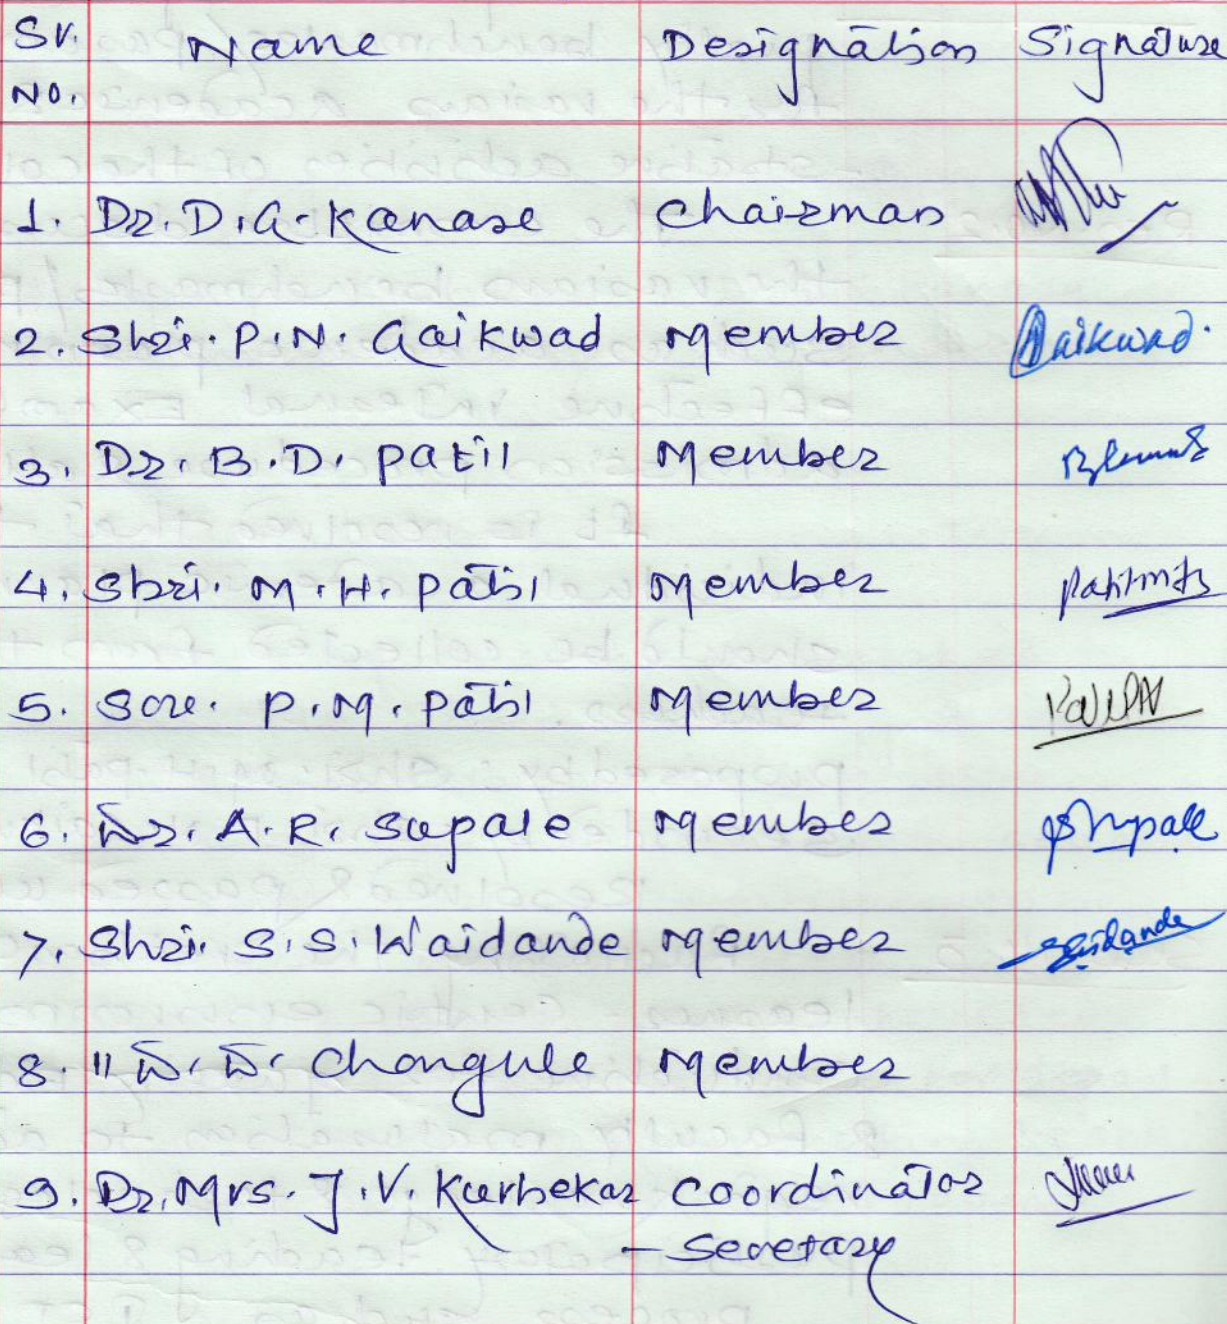 Sr. No. Name Designation Signature
1. Dr. D. G. Kanase Chairman
2. Shri. P. N. Gaikwad Member Gaikwad.
3. Dr. B. D. Patil Member
4. Shri. M. H. Patil Member
5. Sou. P. M. Patil Member
6. Dr. A. R. Supale Member
7. Shri. S. S. Waidande Member
8. " D. D. Chougule Member
9. Dr. Mrs. J. V. Kurhekar Coordinator
– Secretary